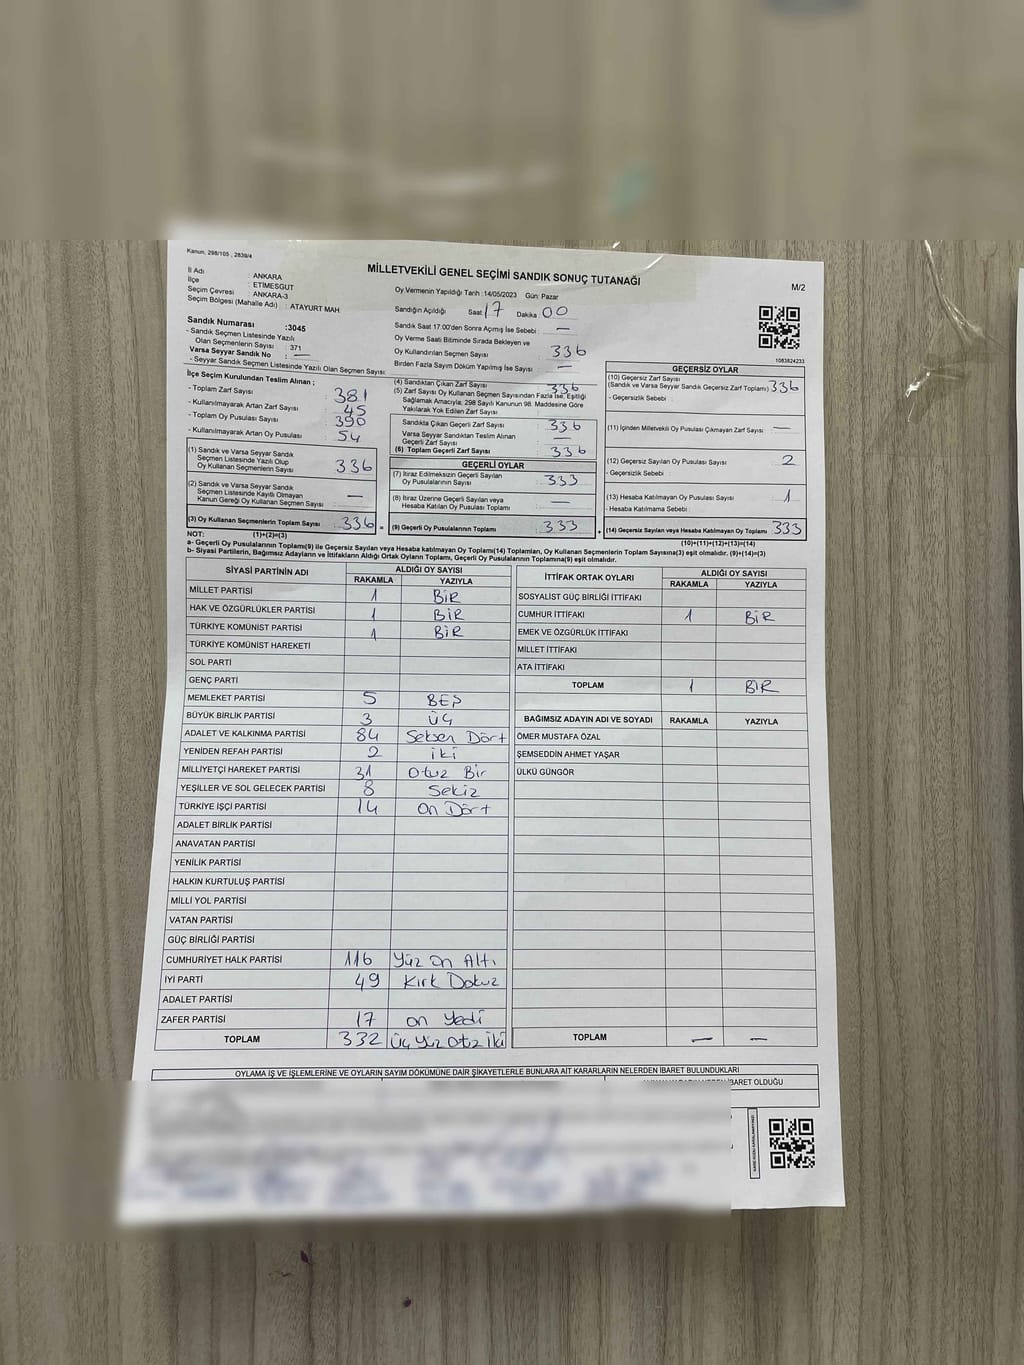 Kanun, 298/105 , 2839/4
MİLLETVEKİLİ GENEL SEÇİMİ SANDIK SONUÇ TUTANAĞI
M/2
İl Adı : ANKARA
İlçe : ETİMESGUT
Seçim Çevresi : ANKARA-3
Seçim Bölgesi (Mahalle Adı) : ATAYURT MAH
Sandık Numarası :3045
- Sandık Seçmen Listesinde Yazılı
Olan Seçmenlerin Sayısı : 371
Varsa Seyyar Sandık No : —
- Seyyar Sandık Seçmen Listesinde Yazılı Olan Seçmen Sayısı
Oy Vermenin Yapıldığı Tarih :14/05/2023 Gün: Pazar
Sandığın Açıldığı Saat 17 Dakika 00
Sandık Saat 17.00'den Sonra Açılmış İse Sebebi : —
Oy Verme Saati Bitiminde Sırada Bekleyen ve
Oy Kullandırılan Seçmen Sayısı : 336
Birden Fazla Sayım Döküm Yapılmış İse Sayısı : —
1083824233
İlçe Seçim Kurulundan Teslim Alınan ;
- Toplam Zarf Sayısı : 381
- Kullanılmayarak Artan Zarf Sayısı : 45
- Toplam Oy Pusulası Sayısı : 390
- Kullanılmayarak Artan Oy Pusulası : 54
(1) Sandık ve Varsa Seyyar Sandık
Seçmen Listesinde Yazılı Olup
Oy Kullanan Seçmenlerin Sayısı : 336
(2) Sandık ve Varsa Seyyar Sandık
Seçmen Listesinde Kayıtlı Olmayan
Kanun Gereği Oy Kullanan Seçmen Sayısı : —
(3) Oy Kullanan Seçmenlerin Toplam Sayısı : 336 =
(1)+(2)=(3)
(4) Sandıktan Çıkan Zarf Sayısı : 336
(5) Zarf Sayısı Oy Kullanan Seçmen Sayısından Fazla İse, Eşitliği
Sağlamak Amacıyla; 298 Sayılı Kanunun 98. Maddesine Göre
Yakılarak Yok Edilen Zarf Sayısı :
Sandıkta Çıkan Geçerli Zarf Sayısı : 336
Varsa Seyyar Sandıktan Teslim Alınan
Geçerli Zarf Sayısı : —
(6) Toplam Geçerli Zarf Sayısı : 336
GEÇERLİ OYLAR
(7) İtiraz Edilmeksizin Geçerli Sayılan
Oy Pusulalarının Sayısı : 333
(8) İtiraz Üzerine Geçerli Sayılan veya
Hesaba Katılan Oy Pusulası Toplamı : —
(9) Geçerli Oy Pusulalarının Toplamı : 333 +
GEÇERSİZ OYLAR
(10) Geçersiz Zarf Sayısı
(Sandık ve Varsa Seyyar Sandık Geçersiz Zarf Toplamı) 336
- Geçersizlik Sebebi :
(11) İçinden Milletvekili Oy Pusulası Çıkmayan Zarf Sayısı : —
(12) Geçersiz Sayılan Oy Pusulası Sayısı : 2
- Geçersizlik Sebebi :
(13) Hesaba Katılmayan Oy Pusulası Sayısı : 1
- Hesaba Katılmama Sebebi :
(14) Geçersiz Sayılan veya Hesaba Katılmayan Oy Toplamı : 333
(10)+(11)+(12)+(13)=(14)
NOT:
a- Geçerli Oy Pusulalarının Toplamı(9) ile Geçersiz Sayılan veya Hesaba katılmayan Oy Toplamı(14) Toplamları, Oy Kullanan Seçmenlerin Toplam Sayısına(3) eşit olmalıdır. (9)+(14)=(3)
b- Siyasi Partilerin, Bağımsız Adayların ve İttifakların Aldığı Ortak Oyların Toplamı, Geçerli Oy Pusulalarının Toplamına(9) eşit olmalıdır.
SİYASİ PARTİNİN ADI ALDIĞI OY SAYISI
RAKAMLA YAZIYLA
MİLLET PARTİSİ 1 BİR
HAK VE ÖZGÜRLÜKLER PARTİSİ 1 BİR
TÜRKİYE KOMÜNİST PARTİSİ 1 BİR
TÜRKİYE KOMÜNİST HAREKETİ
SOL PARTİ
GENÇ PARTİ
MEMLEKET PARTİSİ 5 BEŞ
BÜYÜK BİRLİK PARTİSİ 3 ÜÇ
ADALET VE KALKINMA PARTİSİ 84 Seksen Dört
YENİDEN REFAH PARTİSİ 2 iki
MİLLİYETÇİ HAREKET PARTİSİ 31 Otuz Bir
YEŞİLLER VE SOL GELECEK PARTİSİ 8 Sekiz
TÜRKİYE İŞÇİ PARTİSİ 14 On Dört
ADALET BİRLİK PARTİSİ
ANAVATAN PARTİSİ
YENİLİK PARTİSİ
HALKIN KURTULUŞ PARTİSİ
MİLLİ YOL PARTİSİ
VATAN PARTİSİ
GÜÇ BİRLİĞİ PARTİSİ
CUMHURİYET HALK PARTİSİ 116 Yüz On Altı
İYİ PARTİ 49 Kırk Dokuz
ADALET PARTİSİ
ZAFER PARTİSİ 17 on Yedi
TOPLAM 332 Üç Yüz Otz İki
İTTİFAK ORTAK OYLARI ALDIĞI OY SAYISI
RAKAMLA YAZIYLA
SOSYALİST GÜÇ BİRLİĞİ İTTİFAKI
CUMHUR İTTİFAKI 1 BİR
EMEK VE ÖZGÜRLÜK İTTİFAKI
MİLLET İTTİFAKI
ATA İTTİFAKI
TOPLAM 1 BİR
BAĞIMSIZ ADAYIN ADI VE SOYADI RAKAMLA YAZIYLA
ÖMER MUSTAFA ÖZAL
ŞEMSEDDİN AHMET YAŞAR
ÜLKÜ GÜNGÖR
TOPLAM — —
OYLAMA İŞ VE İŞLEMLERİNE VE OYLARIN SAYIM DÖKÜMÜNE DAİR ŞİKAYETLERLE BUNLARA AİT KARARLARIN NELERDEN İBARET BULUNDUKLARI
İBARET OLDUĞU